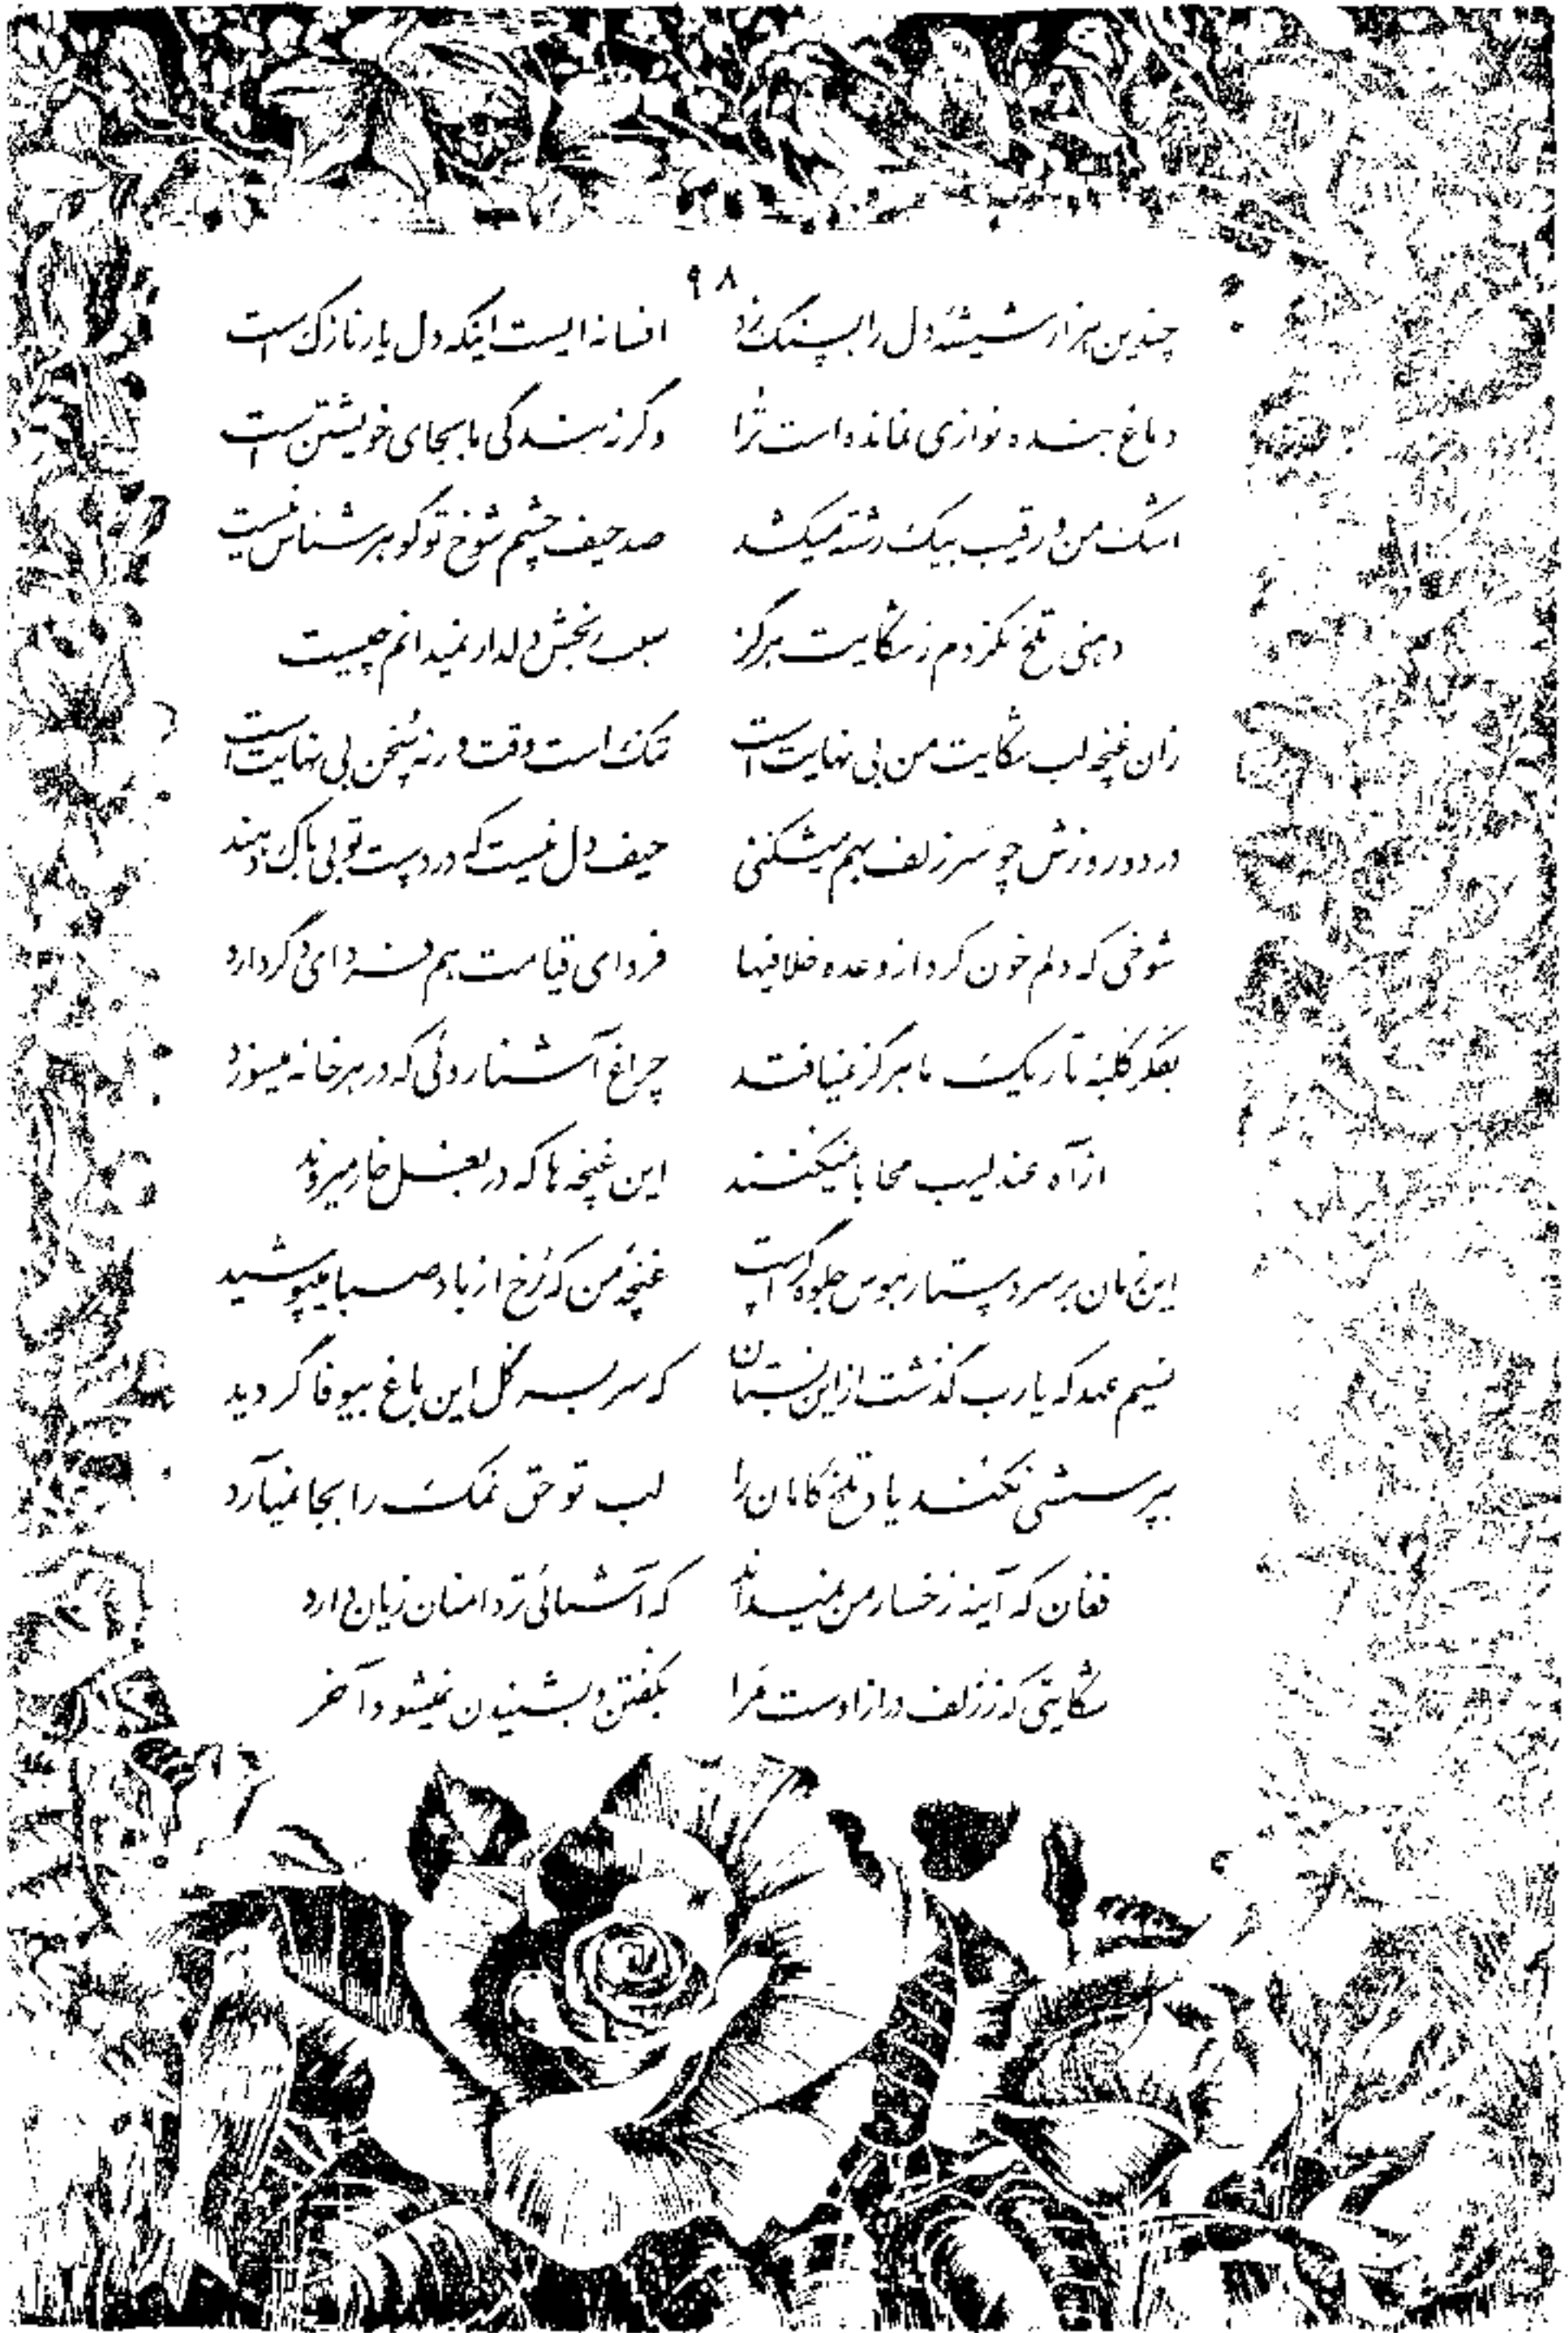 ۹۸
چندین هزار شیشهٔ دل را بسنگ زد افسانه ایست اینکه دل یار نازک است
دماغ بنده نوازی نمانده است ترا وگرنه بندگی ما بجای خویشتن است
اشک من و رقیب بیک رشته میکشد صد حیف چشم شوخ تو گوهر شناس نیست
دهنی تلخ نکردم ز شکایت هرگز سبب رنجش دلدار نمیدانم چیست
زان غنچه لب شکایت من بی نهایت است تنک است وقت ورنه سخن بی نهایت است
در دو روزش چو سر زلف بهم میشکنی حیف دل نیست که در دست تو بی باک دهند
شوخی که دلم خون کرد از وعده خلافیها فردای قیامت هم فردای دگر دارد
بفکر کلبهٔ تاریک ما هرگز نمیافتد چراغ آشنا روئی که در هر خانه میسوزد
از آه عندلیب محابا نمیکنند این غنچه ها که در بغل خار میروند
این زمان بر سر دستار هوس جلوه گر است غنچهٔ من که رخ از باد صبا میپوشید
نسیم عهد که یارب گذشت از این بستان که سر بسر گل این باغ بیوفا گردید
بپرسشی نکند یاد تلخ کامان را لب تو حق نمک را بجا نمیآرد
فغان که آینه رخسار من نمیداند که آشنائی تردامنان زیان دارد
شکایتی که ز زلف دراز اوست مرا بگفتن و بشنیدن نمیشود آخر